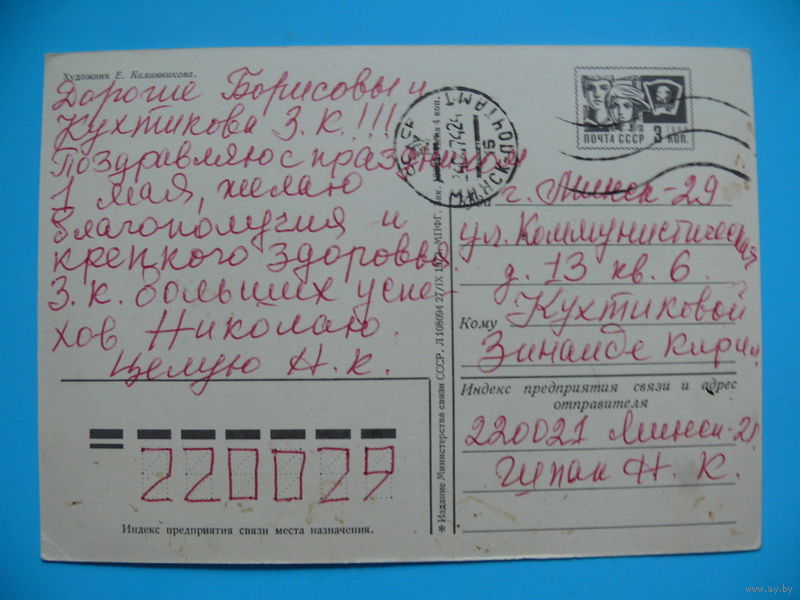 Художник Е. Калинникова.
Дорогие Борисовы и
Кухтикова З.К.!!!
Поздравляю с праздником
1 мая, желаю
благополучия и
крепкого здоровья
З.К. больших успе-
хов Николаю.
Целую Н.К.
220029
Индекс предприятия связи места назначения.
✻ Издание Министерства связи СССР. Л 108094 27/IX 1973. МПФГ.
4 коп.
МИНСК-ПОЧТАМТ
ПОЧТА СССР 3 КОП.
г. Минск-29
ул. Коммунистическая
д. 13 кв. 6.
Кому Кухтиковой
Зинаиде Кирил
Индекс предприятия связи и адрес
отправителя
220021 Минск-21
Н.К.
www.ay.by